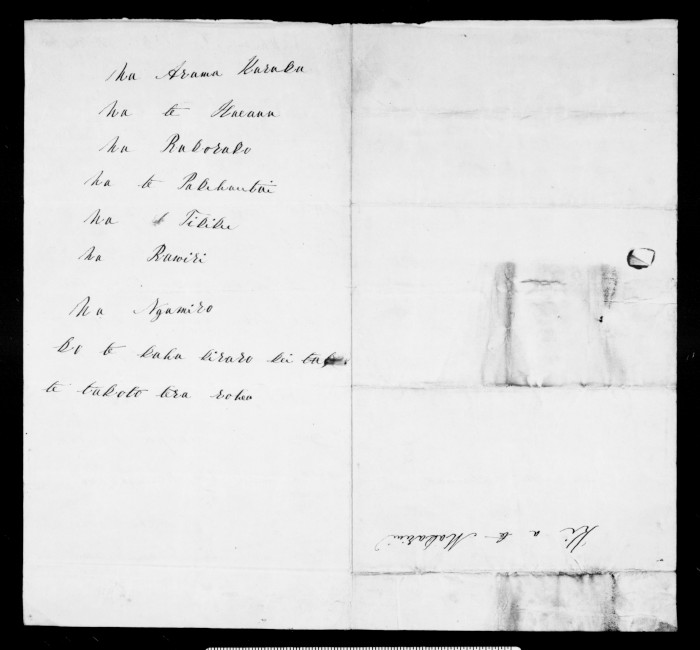 Na Arama Karaka
Na te Haeana
Na Rakorako
Na te Pakihautai
Na Tikiku
Na Rawiri
Na Ngamiro
ko te kaha kiraro kei
te takoto tera roha
Ki a te Makarini